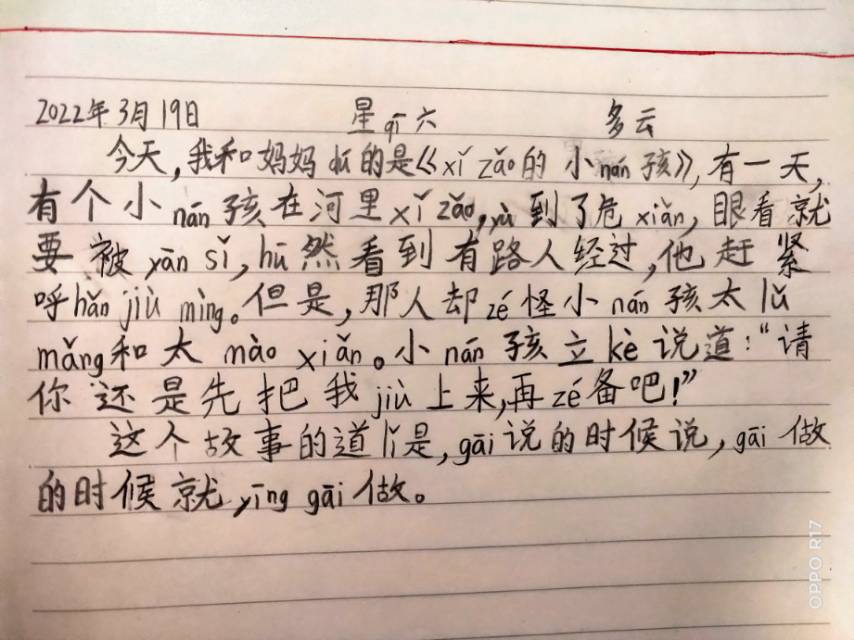 2022年3月19日 星qī六 多云
今天,我和妈妈dú的是《xǐ zǎo的小nán孩》,有一天,
有个小nán孩在河里xǐ zǎo,yù到了危xiǎn,眼看就
要被yān sǐ,hū然看到有路人经过,他赶紧
呼hǎn jiù mìng。但是,那人却zé怪小nán孩太lǔ
mǎng和太mào xiǎn。小nán孩立kè说道:“请
你还是先把我jiù上来,再zé备吧!”
这个故事的道lǐ是,gāi说的时候说,gāi做
的时候就yīng gāi做。
OPPO R17